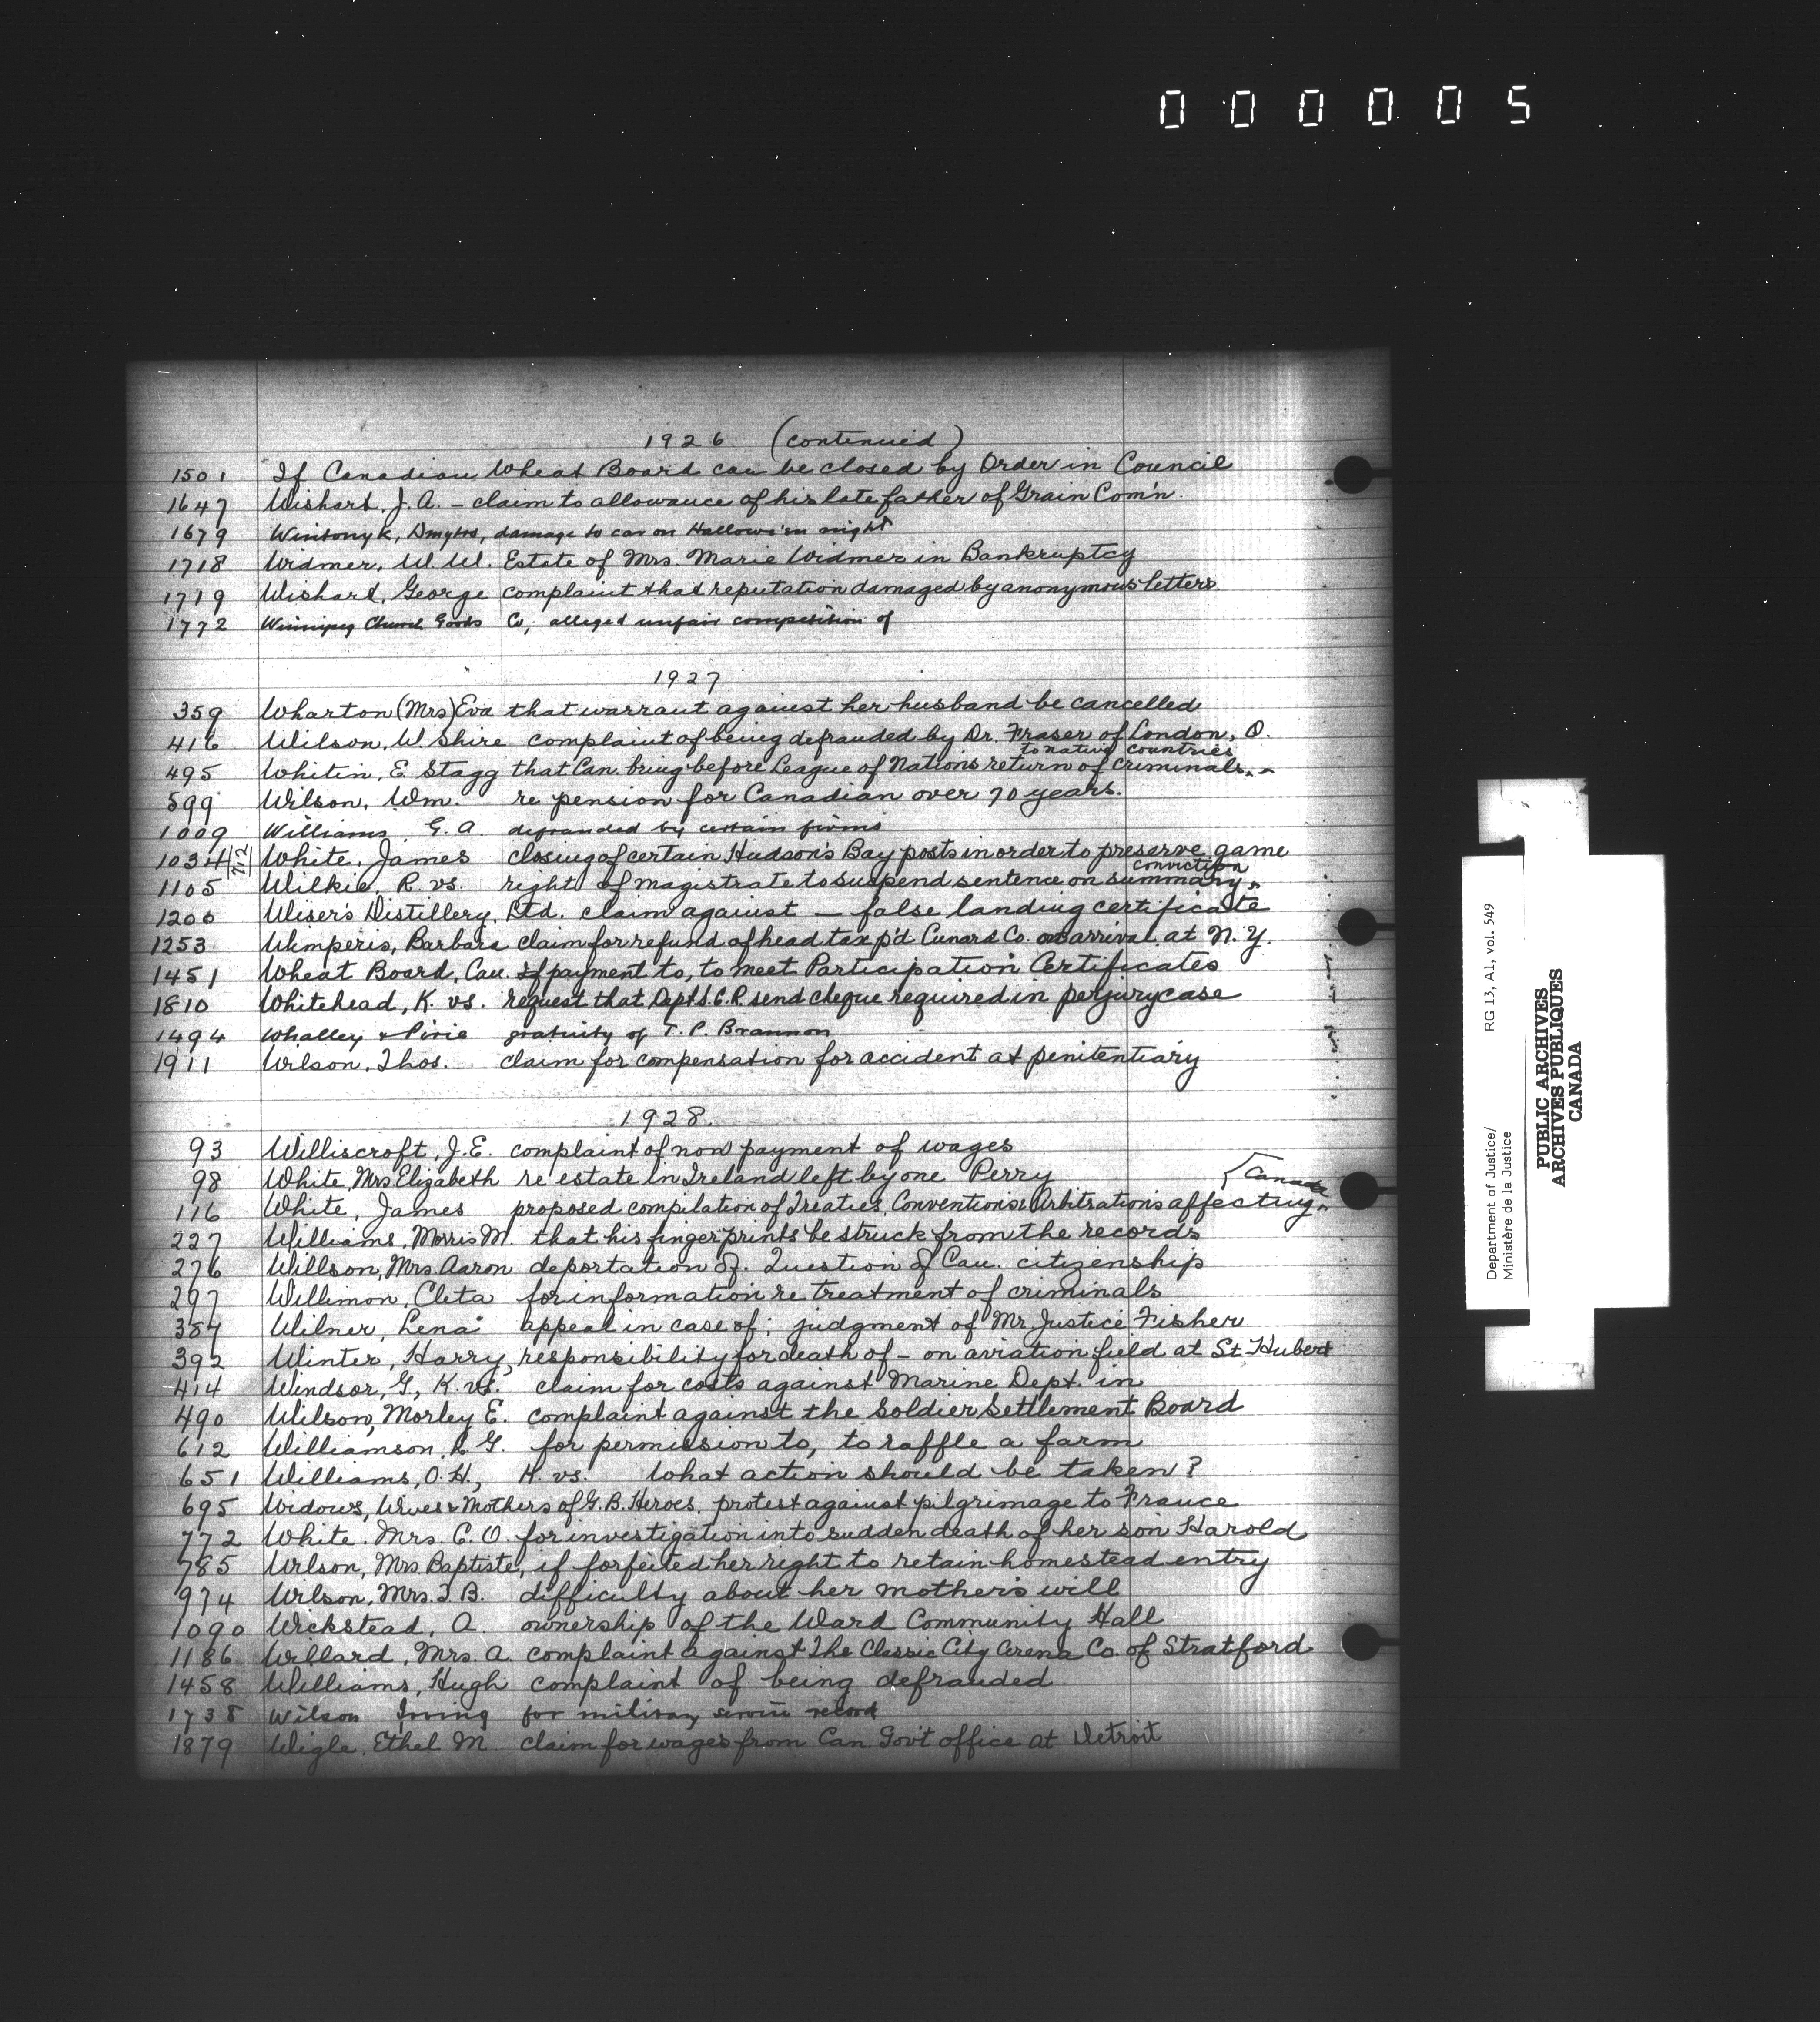 000005
1926 (continued)
1501 If Canadian Wheat Board can be closed by Order in Council
1647 Wishart, J. A. – claim to allowance of his late father of Grain Com'n.
1679 Wintonyk, Dmytro, damage to car on Hallowe'en night
1718 Widmer, W. W. Estate of Mrs. Marie Widmer in Bankruptcy
1719 Wishart, George complaint that reputation damaged by anonymous letters.
1772 Winnipeg Church Goods Co, alleged unfair competition of
1927
359 Wharton (Mrs) Eva that warrant against her husband be cancelled
416 Wilson, W Shire complaint of being defrauded by Dr. Fraser of London, O.
to native countries
495 Whitin, E. Stagg that Can. bring before League of Nations return of criminals.
599 Wilson, Wm. re pension for Canadian over 70 years.
1009 Williams G. A. defrauded by certain firms
1034 White, James closing of certain Hudson's Bay posts in order to preserve game
conviction
1105 Wilkie, R. vs. right of magistrate to suspend sentence on summary
1200 Wiser's Distillery, Ltd. claim against — false landing certificate
1253 Wimperis, Barbara claim for refund of head tax p'd Cunard Co. on arrival at N. Y.
1451 Wheat Board, Can. if payment to, to meet Participation Certificates
1810 Whitehead, K. vs. request that Dept. send cheque required in perjury case
1494 Whalley & Pirie gratuity of T. P. Brannon
1911 Wilson, Thos. claim for compensation for accident at penitentiary
1928.
93 Williscroft, J. E. complaint of non payment of wages
98 White, Mrs Elizabeth re estate in Ireland left by one Perry
Canada
116 White, James proposed compilation of Treaties, Conventions & Arbitrations affecting
227 Williams, Morris M. that his fingerprints be struck from the records
276 Willson, Mrs Aaron deportation of. Question of Can. citizenship
297 Willimon, Cleta for information re treatment of criminals
387 Wilner, Lena appeal in case of; judgment of Mr. Justice Fisher
392 Winter, Harry, responsibility for death of – on aviation field at St. Hubert
414 Windsor, G., K. vs. claim for costs against Marine Dept. in
490 Wilson, Morley E. complaint against the Soldier Settlement Board
612 Williamson, R. G. for permission to, to raffle a farm
651 Williams, O. H., K. vs. What action should be taken?
695 Widows, Wives & Mothers of G. B. Heroes, protest against pilgrimage to France
772 White, Mrs. C. O. for investigation into sudden death of her son Harold
785 Wilson, Mrs. Baptiste, if forfeited her right to retain homestead entry
974 Wilson, Mrs. T. B. difficulty about her mother's will
1090 Wickstead, A. ownership of the Ward Community Hall
1186 Willard, Mrs. A. complaint against The Classic City Arena Co. of Stratford
1458 Williams, Hugh complaint of being defrauded
1738 Wilson Irving for military service record
1879 Wigle, Ethel M claim for wages from Can. Gov't office at Detroit
Department of Justice/ RG 13, A1, vol. 549
Ministère de la Justice
PUBLIC ARCHIVES
ARCHIVES PUBLIQUES
CANADA